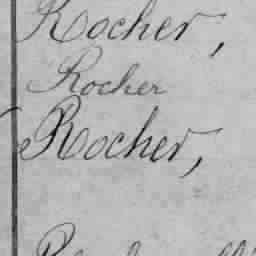 Rocher,
Rocher
Rocher,